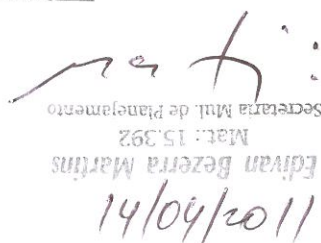 Edivan Bezerra Martins
Mat.: 15.392
Secretaria Mul. de Planejamento
14/04/2011